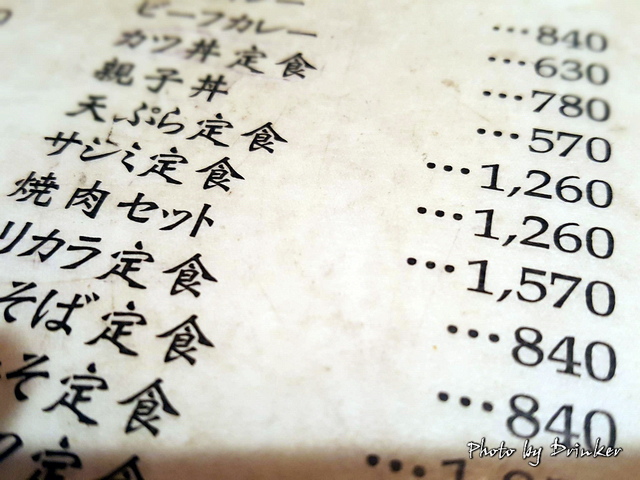 レー …840
ビーフカレー …630
カツ丼定食 …780
親子丼 …570
天ぷら定食 …1,260
サシミ定食 …1,260
焼肉セット …1,570
リカラ定食 …840
そば定食 …840
そ定食
定食
Photo by Drinker